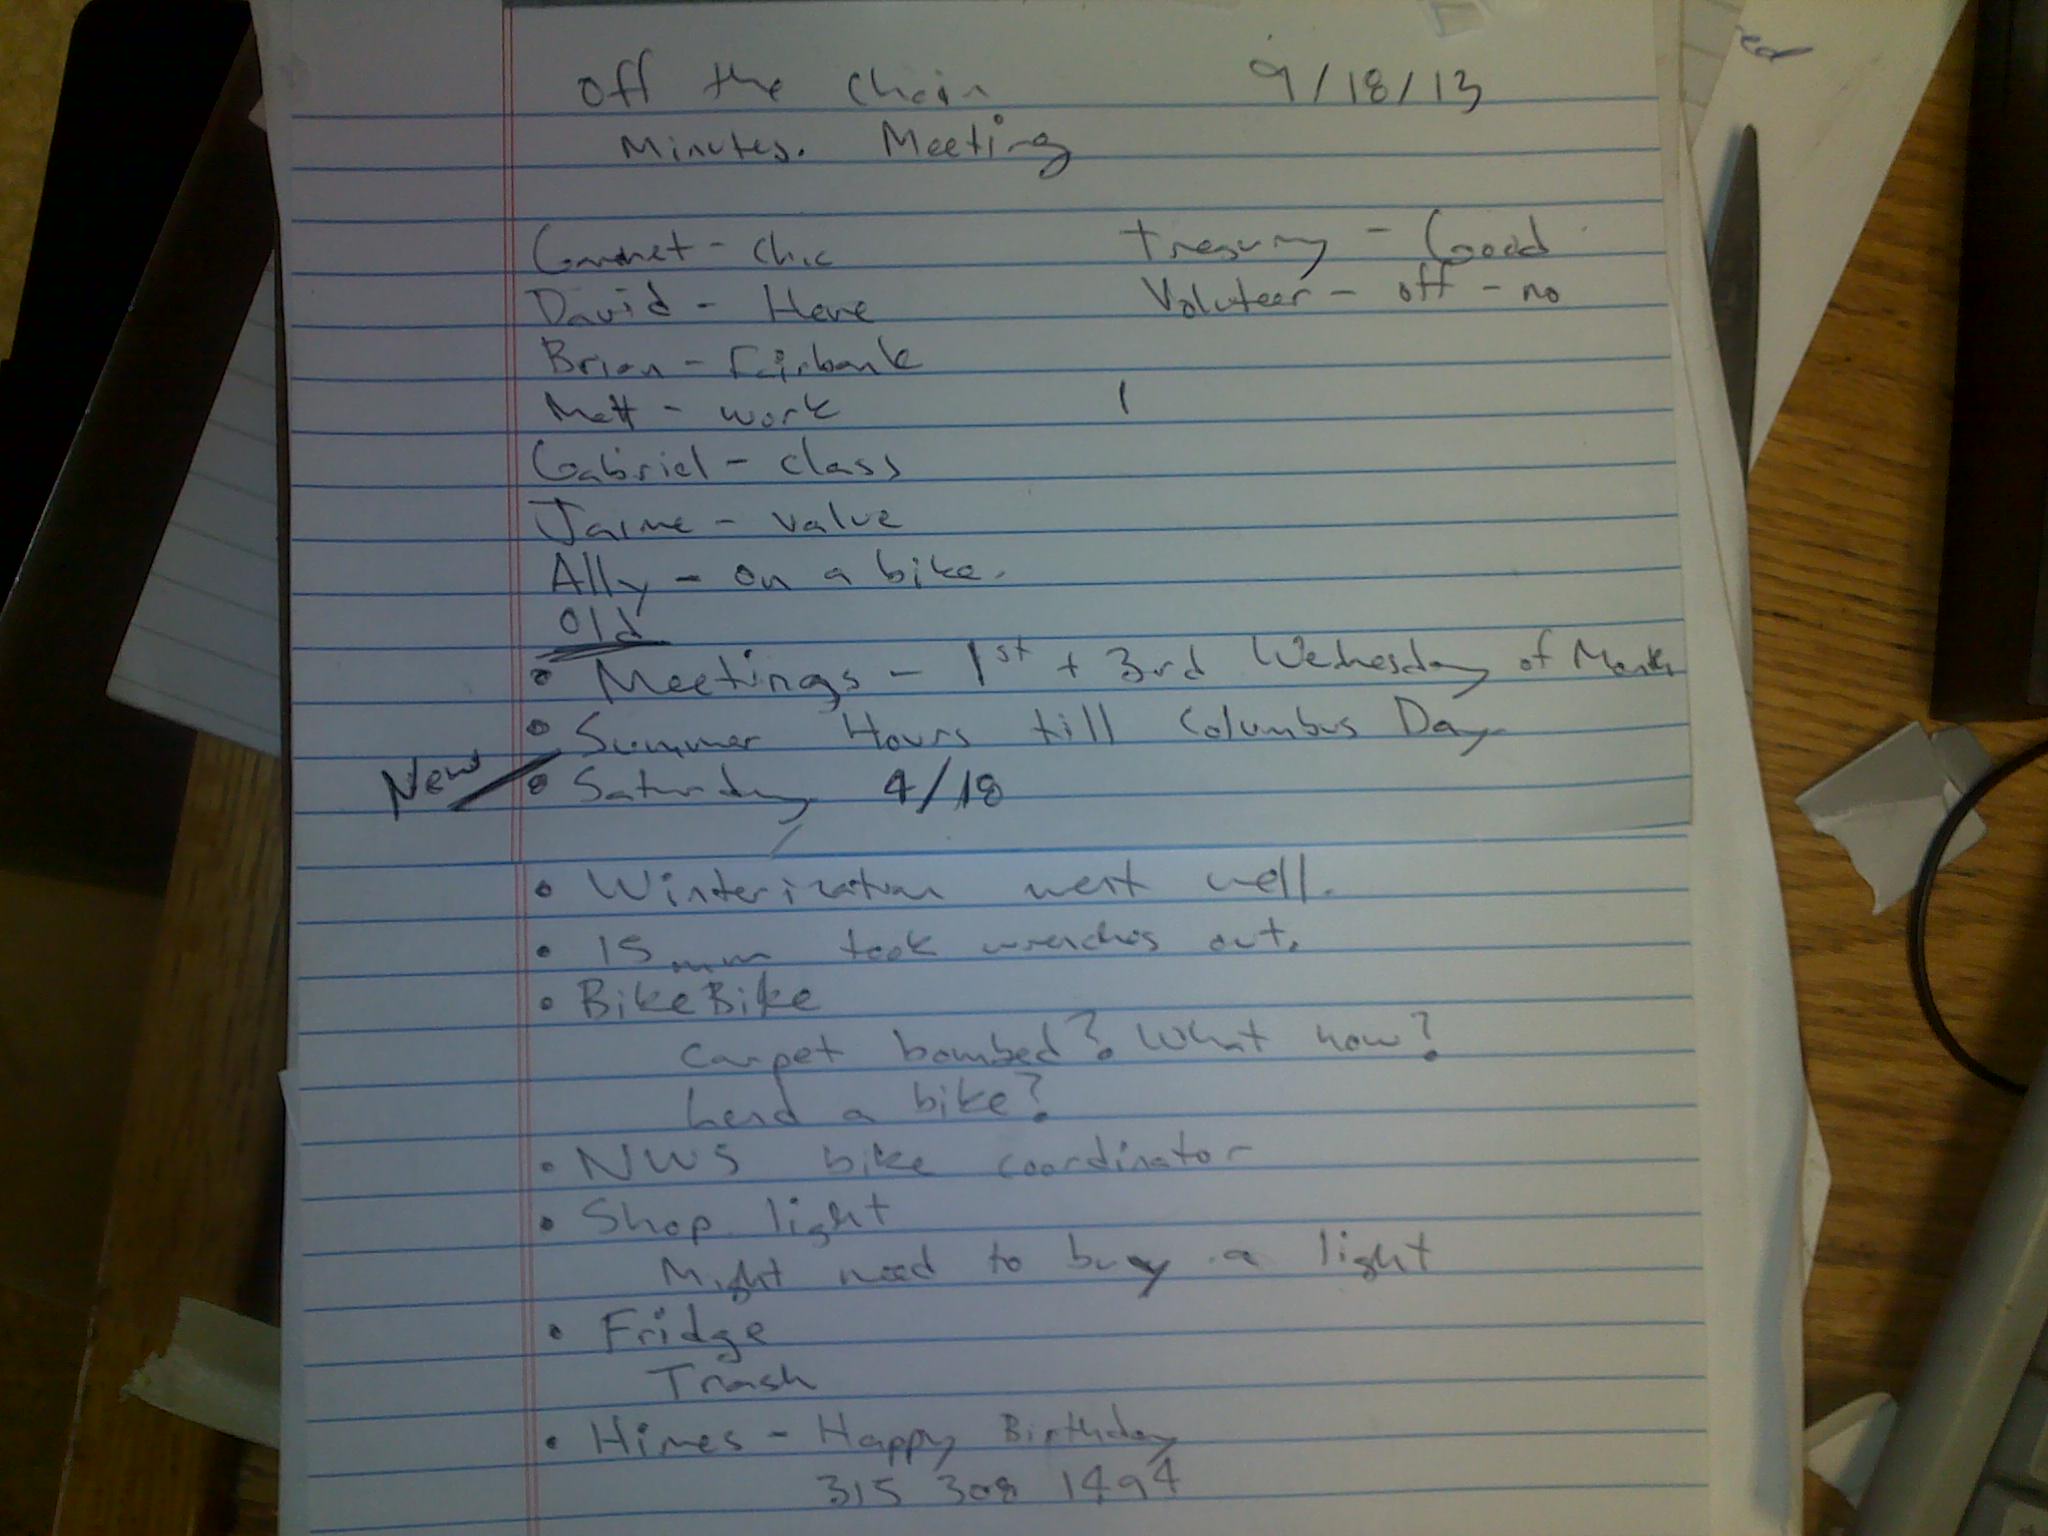 off the chain 9/18/13
Minutes. Meeting
Garnet - Chic Tresury - Good
David - Here Voluteer - off - no
Brian - Fairbank
Matt - work
Gabriel - class
Jaime - value
Ally - on a bike.
Old
• Meetings - 1st + 3rd Wednesday of Month
• Summer Hours till Columbus Day
New • Saturday 9/18
• Winterization went well.
• 15 mm took wrenches out.
• BikeBike
carpet bombed? What now?
a bike?
• NWS bike coordinator
• Shop light
Might need to buy a light
• Fridge
Trash
• Himes - Happy Birthday
315 308 1494
ed